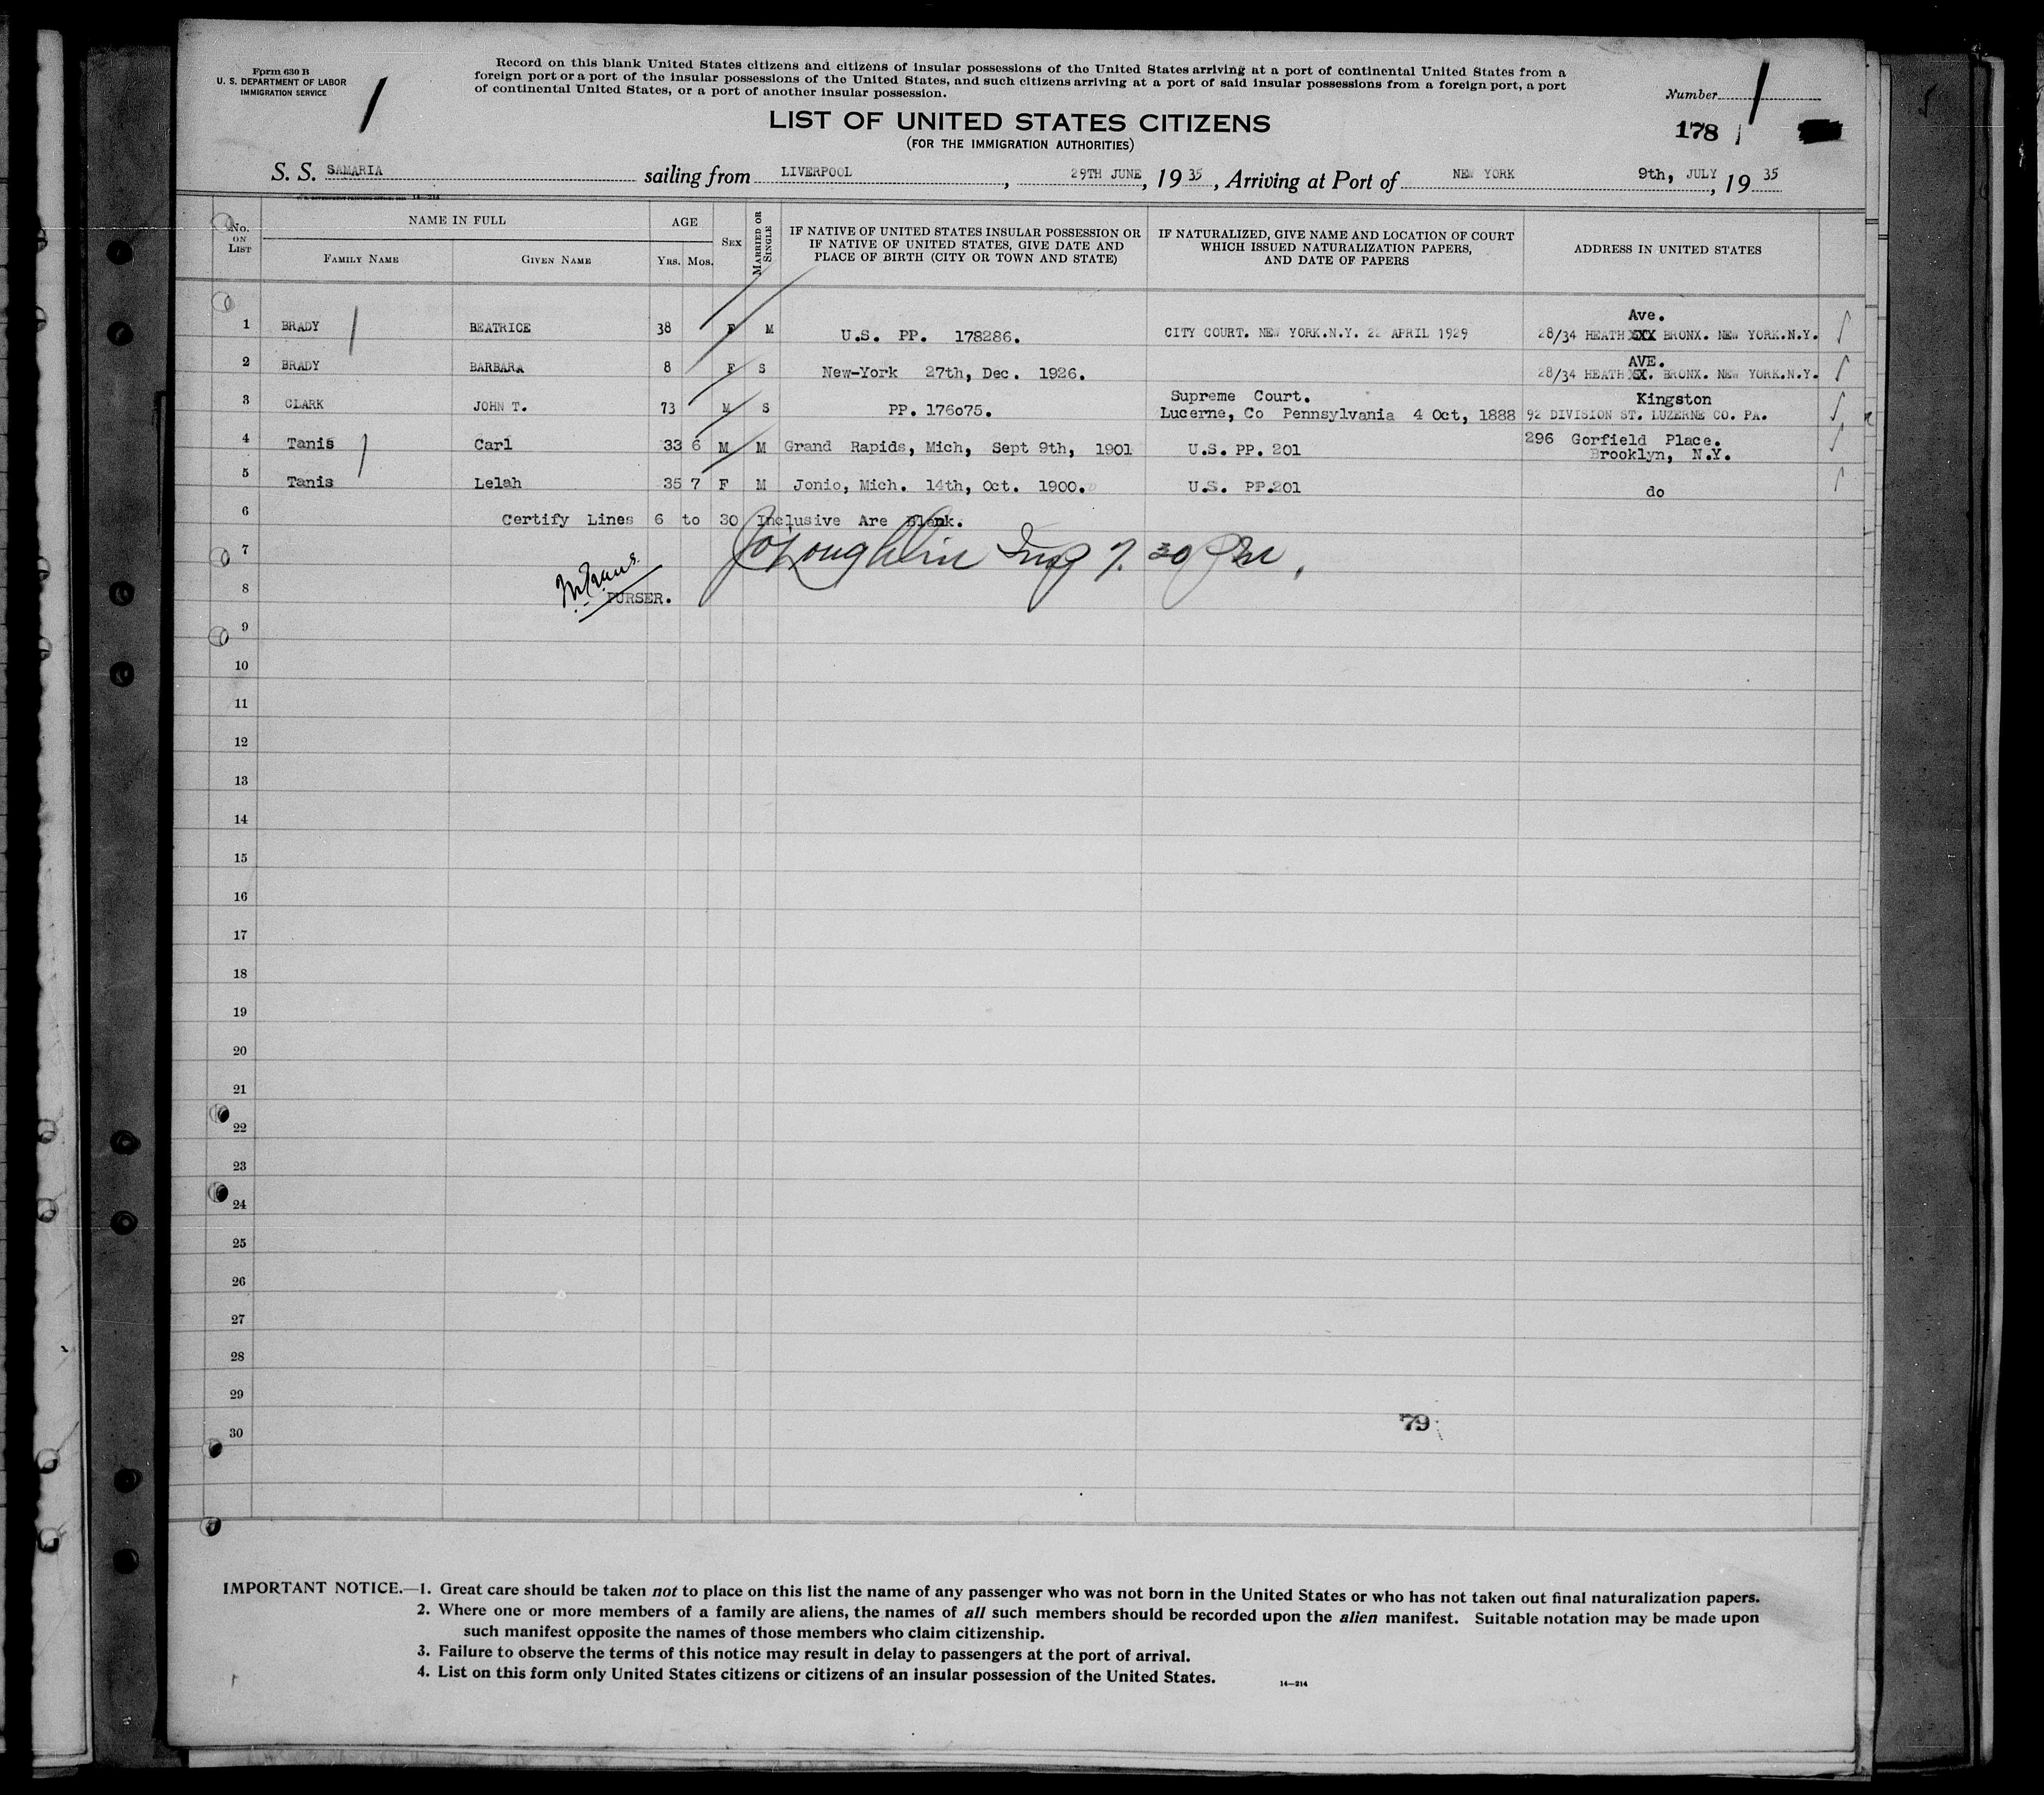 Form 630 B
U. S. DEPARTMENT OF LABOR
IMMIGRATION SERVICE
1
Record on this blank United States citizens and citizens of insular possessions of the United States arriving at a port of continental United States from a
foreign port or a port of the insular possessions of the United States, and such citizens arriving at a port of said insular possessions from a foreign port, a port
of continental United States, or a port of another insular possession.
Number 1
178
LIST OF UNITED STATES CITIZENS
(FOR THE IMMIGRATION AUTHORITIES)
S. S. SAMARIA sailing from LIVERPOOL, 29TH JUNE, 1935, Arriving at Port of NEW YORK 9th, JULY, 1935
No. ON LIST
NAME IN FULL
FAMILY NAME GIVEN NAME
AGE
YRS. MOS.
SEX
MARRIED OR SINGLE
IF NATIVE OF UNITED STATES INSULAR POSSESSION OR
IF NATIVE OF UNITED STATES, GIVE DATE AND
PLACE OF BIRTH (CITY OR TOWN AND STATE)
IF NATURALIZED, GIVE NAME AND LOCATION OF COURT
WHICH ISSUED NATURALIZATION PAPERS,
AND DATE OF PAPERS
ADDRESS IN UNITED STATES
Ave.
1 BRADY BEATRICE 38 F M U.S. PP. 178286. CITY COURT. NEW YORK.N.Y. 22 APRIL 1929 28/34 HEATH XXX BRONX. NEW YORK.N.Y.
AVE.
2 BRADY BARBARA 8 F S New-York 27th, Dec. 1926. 28/34 HEATH BRONX. NEW YORK.N.Y.
Supreme Court. Kingston
3 CLARK JOHN T. 73 M S PP. 176075. Lucerne, Co Pennsylvania 4 Oct, 1888 92 DIVISION ST. LUZERNE CO. PA.
296 Gorfield Place.
4 Tanis Carl 33 6 M M Grand Rapids, Mich, Sept 9th, 1901 U.S. PP. 201 Brooklyn, N.Y.
5 Tanis Lelah 35 7 F M Jonio, Mich. 14th, Oct. 1900. U.S. PP.201 do
6 Certify Lines 6 to 30 Inclusive Are Blank.
7
8 PURSER.
9
10
11
12
13
14
15
16
17
18
19
20
21
22
23
24
25
26
27
28
29
30
79
IMPORTANT NOTICE.—1. Great care should be taken not to place on this list the name of any passenger who was not born in the United States or who has not taken out final naturalization papers.
2. Where one or more members of a family are aliens, the names of all such members should be recorded upon the alien manifest. Suitable notation may be made upon
such manifest opposite the names of those members who claim citizenship.
3. Failure to observe the terms of this notice may result in delay to passengers at the port of arrival.
4. List on this form only United States citizens or citizens of an insular possession of the United States.
14—214